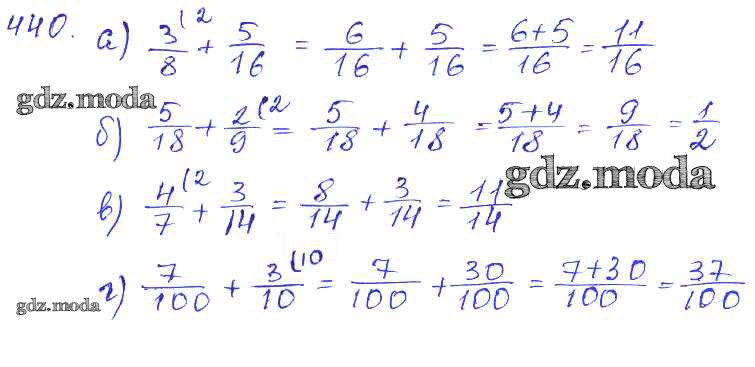 440. а) 3/8 (2 + 5/16 = 6/16 + 5/16 = 6+5/16 = 11/16
gdz.moda
б) 5/18 + 2/9 (2 = 5/18 + 4/18 = 5+4/18 = 9/18 = 1/2
gdz.moda
в) 4/7 (2 + 3/14 = 8/14 + 3/14 = 11/14
г) 7/100 + 3/10 (10 = 7/100 + 30/100 = 7+30/100 = 37/100
gdz.moda